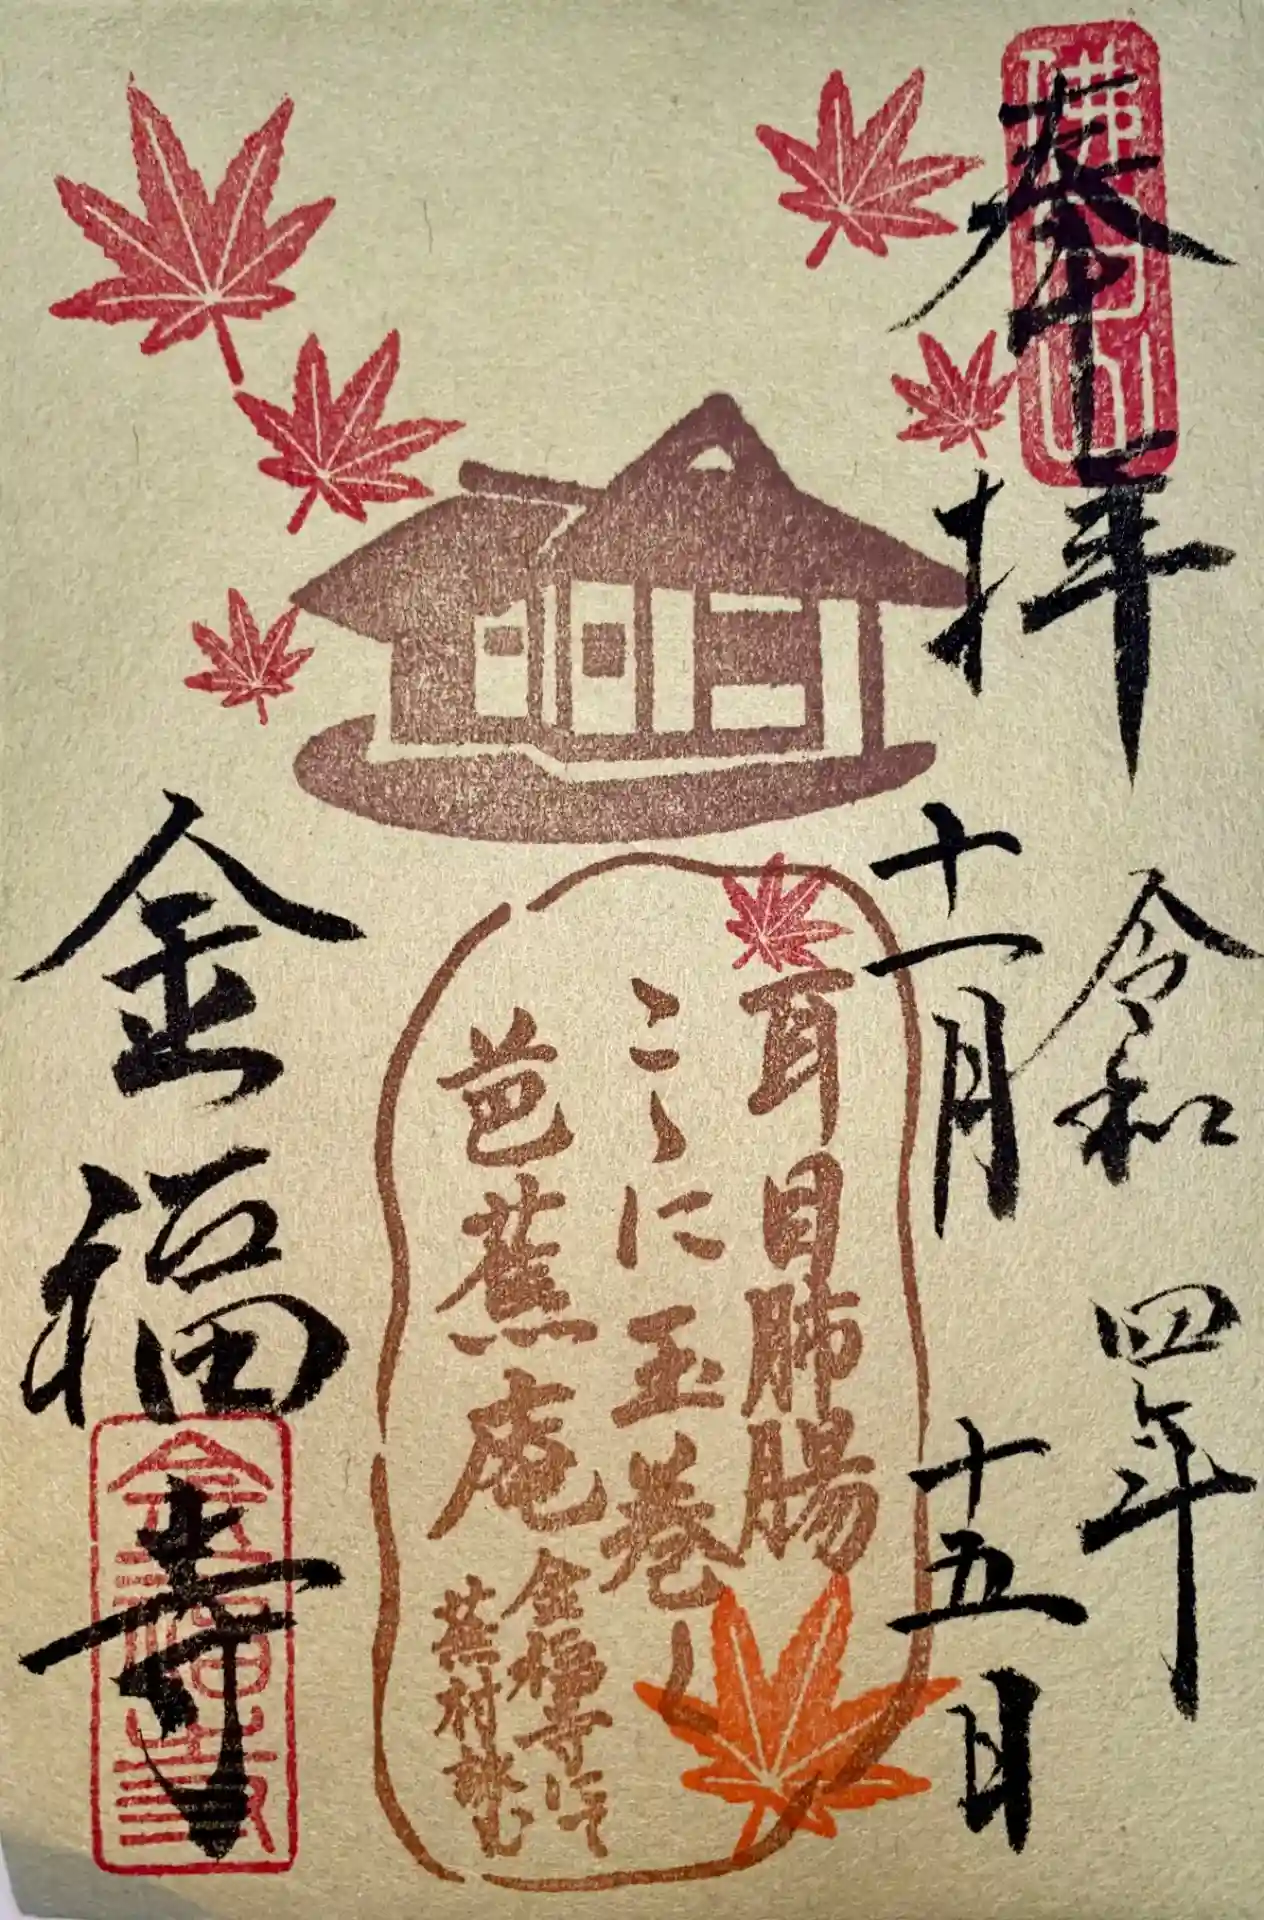 奉拝
令和四年
十一月十五日
耳目肺腸
こゝに玉巻く
芭蕉庵
金福寺にて
蕪村詠む
金福寺
佛日山
金福寺